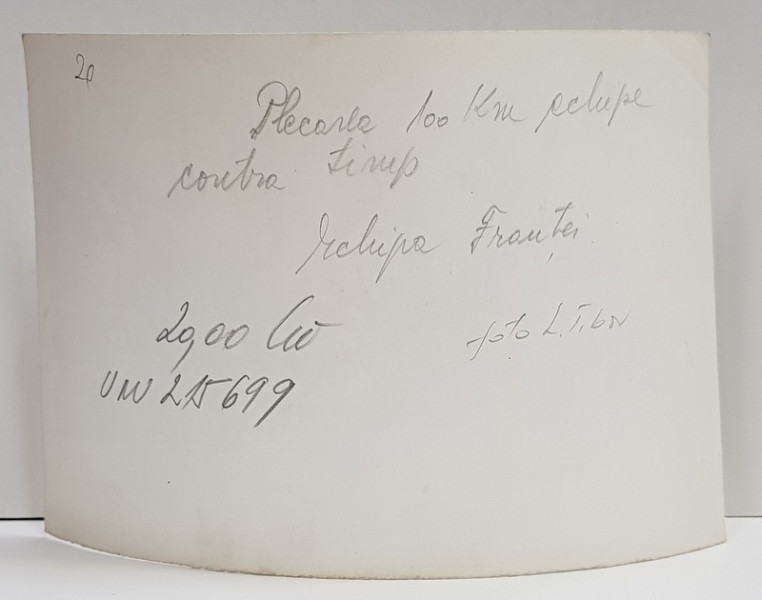 20
Plecarea 100 Km echipe
contra timp
Echipa Franței
2900
foto L. Tibor
215699